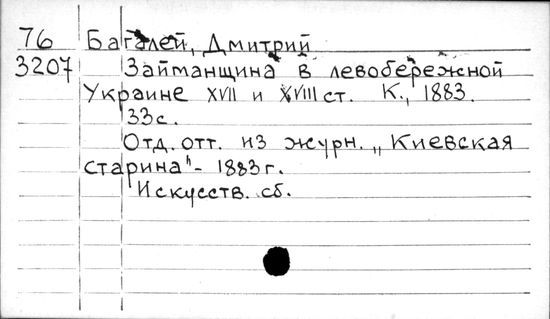 76 Багалей, Дмитрий
3207 Займанщина в левобережной
Украине XVII и XVIII ст. К., 1883.
33с.
Отд. отт. из журн. „Киевская
старина" - 1883г.
Искусств. сб.